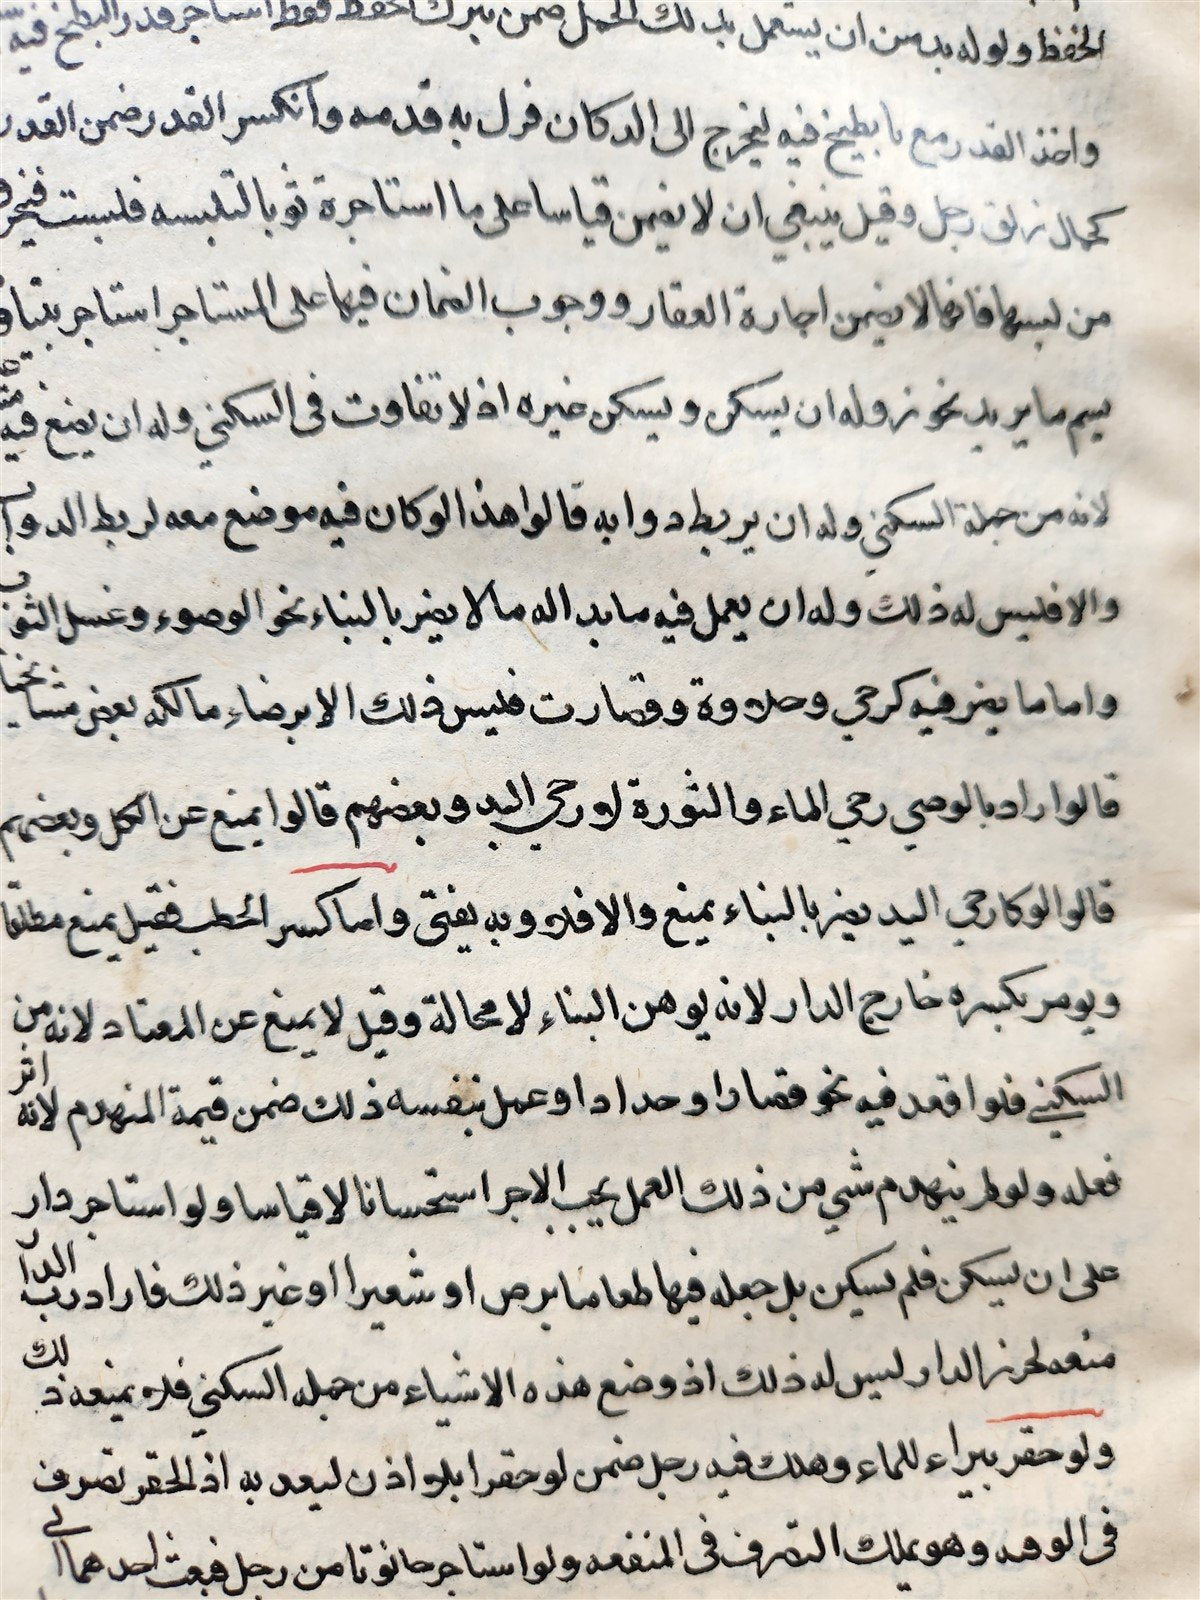 الحفظ ولو له بد من ان يستعمل بذلك الحمل ضمن بترك الحفظ فقط استاجر قدر البطبخ فيه
واخذ القدر مع ما بطبخ فيه ليخرج الى الدكان فزل به قدمه وانكسر القدر ضمن القدر
كحمال زلق رجل وقيل ينبغي ان لا يضمن قياسا على ما استاجرة ثوبا لتلبسه فلبست فتخرق
من لبسها فانها لا يضمن اجارة العقار ووجوب الضمان فيها على المستاجر استاجر بيتا و
يسم ما يريد نحو زوله ان يسكن ويسكن غيره اذ لا تفاوت فى السكنى وله ان يضع فيه
لانه من جملة السكنى وله ان يربط دوابه قالوا هذا لو كان فيه موضع معه لربط الدواب
والا فليس له ذلك وله ان يعمل فيه ما بدا له ما لا يضر بالبناء نحو الوضوء وغسل الثوب
واما ما يضر فيه كرحى وحدادوة وقصارت فليس ذلك الا برضاء مالكه بعض مشايخنا
قالوا راد بالوحى رحى الماء والثورة لو رحى اليد وبعضهم قالوا يمنع عن الكل وبعضهم
قالوا لو كا رحى اليد يضر بالبناء يمنع والا فلا وبه يفتى واما كسر الحطب فقيل يمنع مطلقا
ويومر بكسره خارج الدار لانه يوهن البناء لا محالة وقيل لا يمنع عن المعتاد لانه من
السكنى فلو اقعد فيه نحو قصارا وحدادا او عمل بنفسه ذلك ضمن قيمة المنهدم لانه اثر
فعله ولو لم ينهدم شي من ذلك العمل يجب الاجر استحسانا لا قياسا ولو استاجر دار
على ان يسكن فلم يسكن بل جعله فيها طعاما برص او شعيرا او غير ذلك فاراد رب الدار
منعه لحرز الدار ليس له ذلك اذ وضع هذه الاشياء من جمله السكنى فلا يمنعه ذلك
ولو حقر بيراء للماء وهلك فيه رجل ضمن لو حقرا بلا اذن ليعد به اذ الحقر تصرف
فى الوهد وهو يملك التصرف فى المنفعه ولو استاجر حانوتا من رجل فبعث احدهما الى